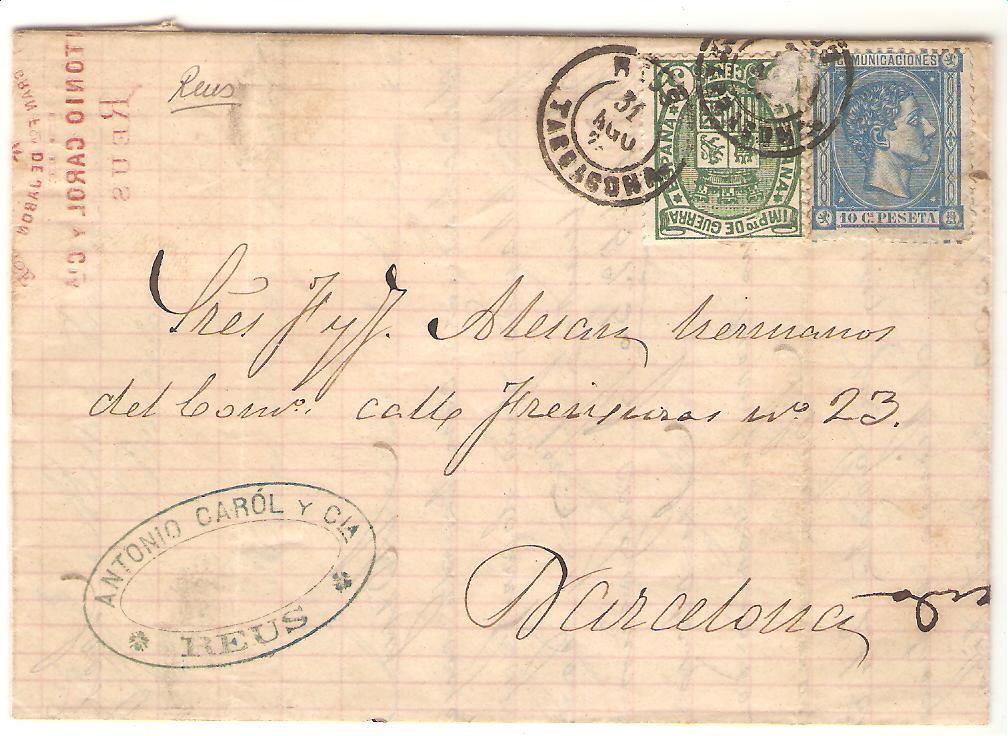 Reus
REUS
TARRAGONA
31
AGO
COMUNICACIONES
10 Cs PESETA
IMPto DE GUERRA
Sres F y J. Alesan hermanos
del Como. calle Freixuras no. 23.
Barcelona
ANTONIO CARÓL Y CÍA
REUS
REUS
NTONIO CAROL Y Cia
DE JABON